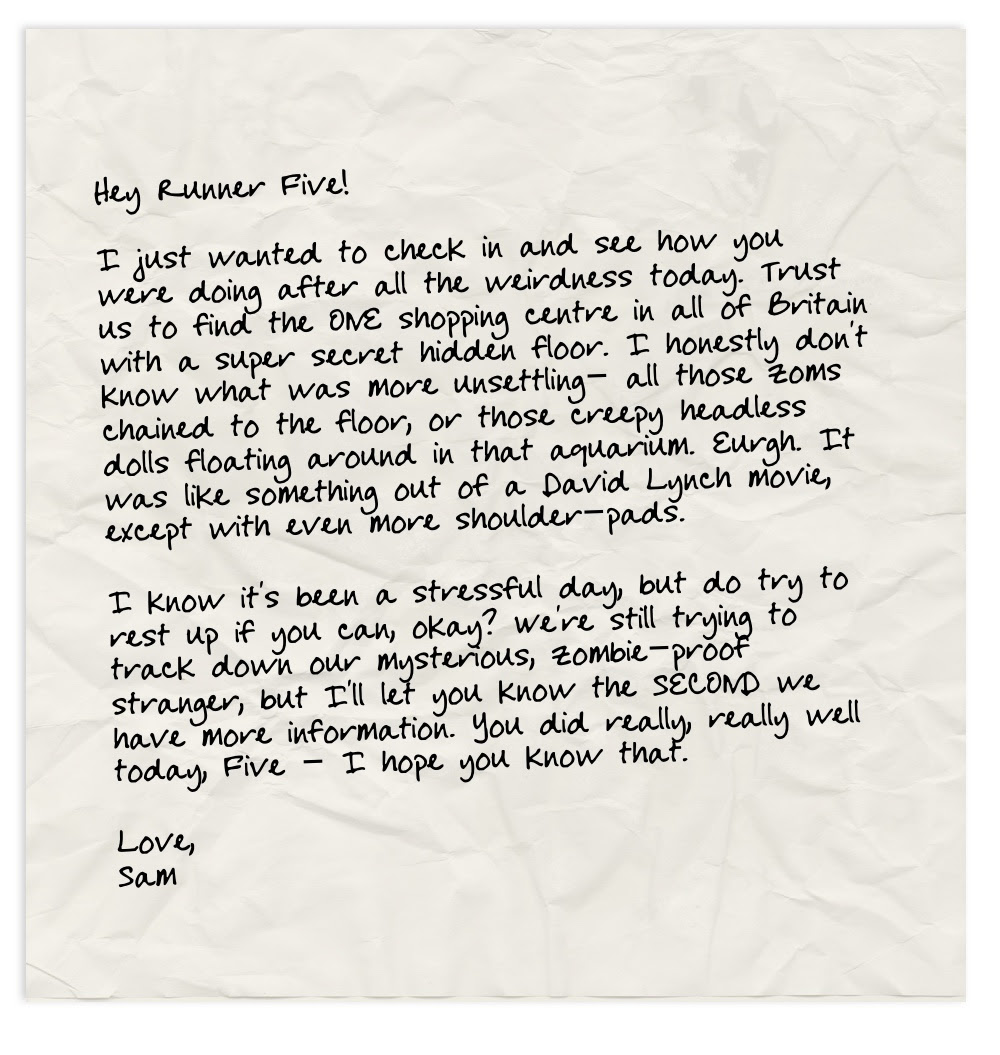 Hey Runner Five!
I just wanted to check in and see how you
were doing after all the weirdness today. Trust
us to find the ONE shopping centre in all of Britain
with a super secret hidden floor. I honestly don't
know what was more unsettling— all those zoms
chained to the floor, or those creepy headless
dolls floating around in that aquarium. Eurgh. It
was like something out of a David Lynch movie,
except with even more shoulder—pads.
I know it's been a stressful day, but do try to
rest up if you can, okay? We're still trying to
track down our mysterious, zombie—proof
stranger, but I'll let you know the SECOND we
have more information. You did really, really well
today, Five — I hope you know that.
Love,
Sam